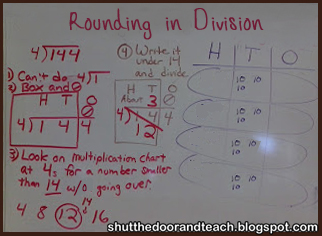 Rounding in Division
4)144
1) Can't do 4)1
2) Box and 0
H T O
0
4)1 4 4
3) Look on multiplication chart
at 4s for a number smaller
than 14 w/o going over.
14
4 8 12 16
4) Write it
under 14
and divide
H T O
Above 3 0
4)1 4 4
1 2
H T O
10 10
10
10 10
10
10 10
10
10 10
10
shutthedoorandteach.blogspot.com